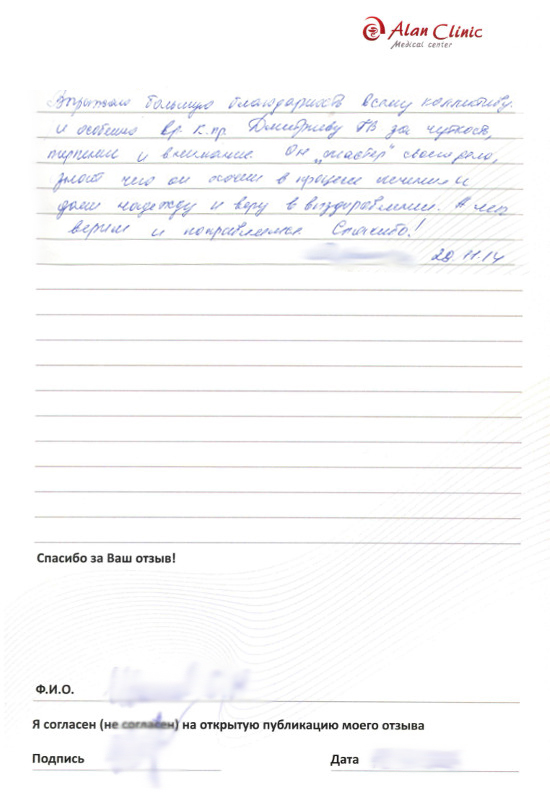 Alan Clinic
Medical center
Выражаю большую благодарность всему коллективу
и особенно Вр. к. пр. Дмитриеву ГВ за чуткость,
терпение и внимание. Он „мастер" своего дела,
знает чего он хочет в процессе лечения и
даёт надежду и веру в выздоровлении. А мы
верим и поправляемся. Спасибо!
20.11.14
Спасибо за Ваш отзыв!
Ф.И.О.
Я согласен (не согласен) на открытую публикацию моего отзыва
Подпись
Дата